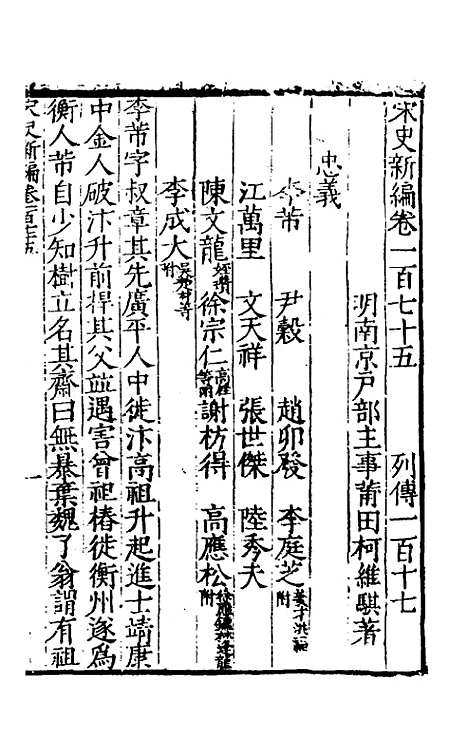 宋史新編卷一百七十五 列傳一百十七
明南京戶部主事莆田柯維騏著
忠義
李芾 尹穀 趙卯發 李庭芝姜才洪福附
江萬里 文天祥 張世傑 陸秀夫
陳文龍 徐宗仁 謝枋得 高應松附
李成大附
李芾字叔章其先廣平人中徙汴高祖升起進士靖康
中金人破汴升前捍其父並遇害曾祖椿徙衡州遂爲
衡人芾自少知樹立名其齋曰無暴棄魏了翁謂有祖
宋史新編卷一百七十五 一